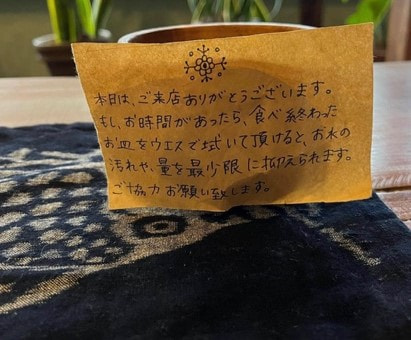 本日は、ご来店ありがとうございます。
もし、お時間があったら、食べ終わった
お皿をウエスで拭いて頂けると、お水の
汚れや、量を最少限に抑えられます。
ご協力お願い致します。